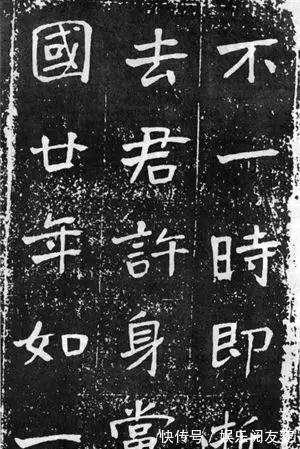 不一時即
去君許身當
國廿年如一
快传号/娱乐闲友